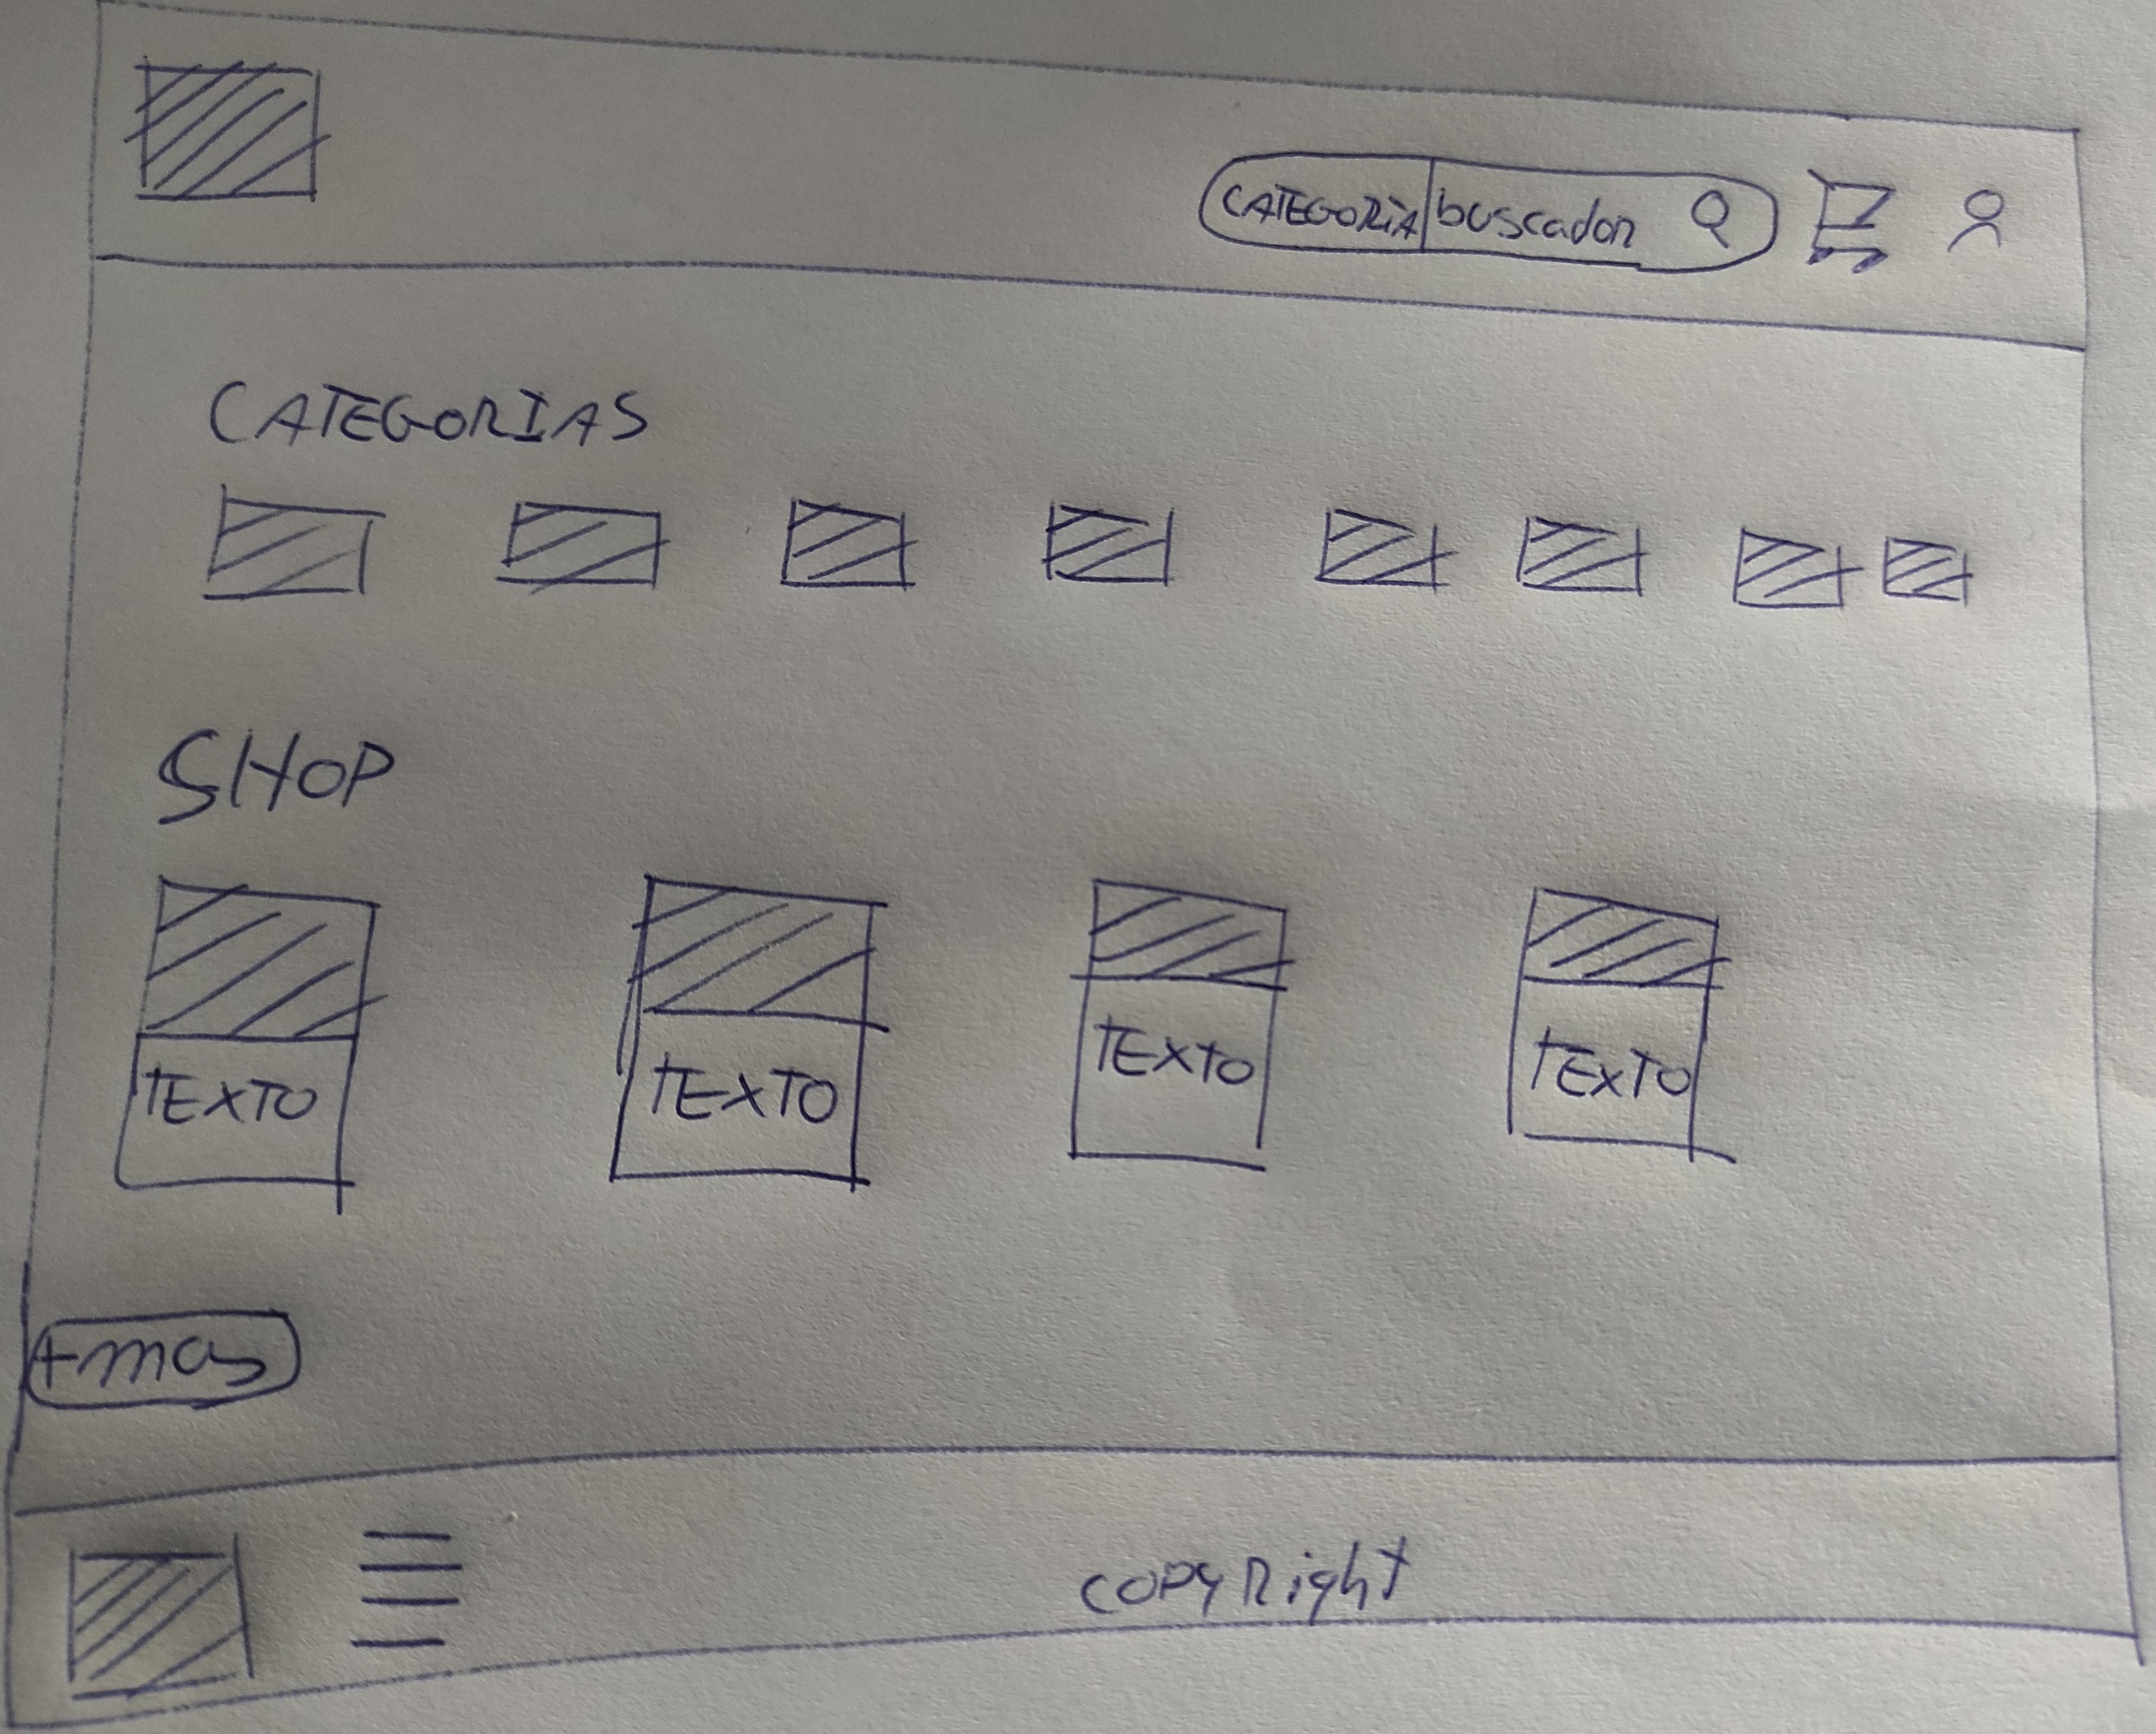 CATEGORIA buscador
CATEGORIAS
SHOP
TEXTO TEXTO TEXTO TEXTO
+mas
copyRight